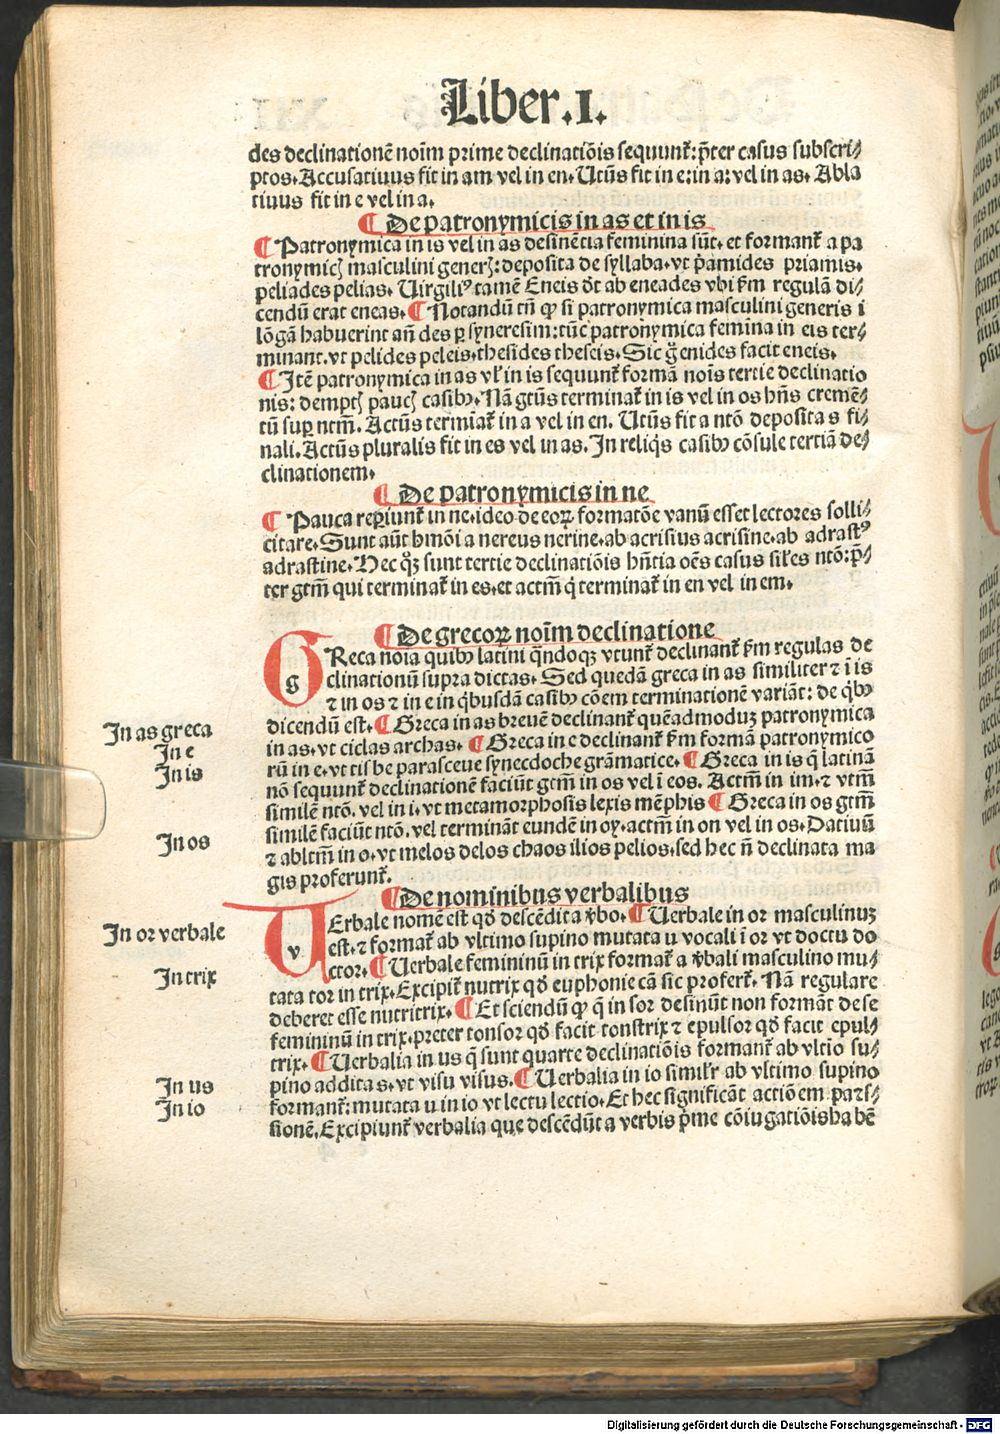 Liber.I.
des declinationē noīm prime declinatiōis sequunt᷑: p̄ter casus subscri⸗
ptos. Accusatiuus fit in am vel in en. Utūs fit in e: in a: vel in as. Abla
tiuus fit in e vel in a.
¶ De patronymicis in as et in is
¶ Patronymica in is vel in as desinētia feminina sūt. et formant᷑ a pa
tronymicꝭ masculini generꝭ: deposita de syllaba. vt p̄amides priamis.
peliades pelias. Uirgiliꝰ tamē Eneis dr̄ ab eneades vbi s̄m regulā di⸗
cendū erat eneas. ¶ Notandū tn̄ ꝙ si patronymica masculini generis i
lōgā habuerint an̄ des ꝑ syneresim: tūc patronymica femina in eis ter⸗
minant. vt pelides peleis. thesides theseis. Sic g̈enides facit eneis.
¶ Itē patronymica in as vl̓ in is sequunt᷑ formā noīs tertie declinatio
nis: demptꝭ paucꝭ casibꝰ. Nā gtūs terminat᷑ in is vel in os hn̄s cremē⸗
tū suꝑ ntm̄. Actūs termīat᷑ in a vel in en. Utūs fit a ntō deposita s fi⸗
nali. Actūs pluralis fit in es vel in as. In reliq̇s casibꝰ cōsule tertiā de⸗
clinationem.
¶ De patronymicis in ne
¶ Pauca reꝑiunt᷑ in ne. ideo de eoꝝ formatōe vanū esset lectores solli⸗
citare. Sunt aūt hmōi a nereus nerine. ab acrisius acrisine. ab adrastꝰ
adrastine. Hec qꝫ sunt tertie declinatiōis hn̄tia oēs casus sil̓es ntō: p̄⸗
ter gtm̄ qui terminat᷑ in es. et actm̄ q̇ terminat᷑ in en vel in em.
¶ De grecoꝝ noīm declinatione
GReca noīa quibꝰ latini q̄ndoqꝫ vtunt᷑ declinant᷑ s̄m regulas de
clinationū supra dictas. Sed quedā greca in as similiter ⁊ ī is
⁊ in os ⁊ in e in q̇busdā casibꝰ cōem terminationē variāt: de q̇bꝰ
dicendū est. ¶ Greca in as breuē declinant᷑ quēadmoduꝫ patronymica
in as. vt ciclas archas. ¶ Greca in e declinant᷑ s̄m formā patronymico
rū in e. vt tisbe parasceue synecdoche grāmatice. ¶ Greca in is q̄ latinā
nō sequunt᷑ declinationē faciūt gtm̄ in os vel ī eos. Actm̄ in im. ⁊ vtm̄
similē ntō. vel in i. vt metamorphosis lexis mēphis ¶ Greca in os gtm̄
similē faciūt ntō. vel termināt eundē in oy. actm̄ in on vel in os. Datiuū
⁊ abltm̄ in o. vt melos delos chaos ilios pelios. sed hec n̄ declinata ma
gis proferunt᷑.
¶ De nominibus verbalibus
UErbale nomē est qd̄ descēdit a v̄bo. ¶ Uerbale in or masculinuꝫ
est. ⁊ format᷑ ab vltimo supino mutata u vocali ī or vt doctu do
ctor. ¶ Uerbale femininū in trix format᷑ a v̄bali masculino mu⸗
tata tor in trix. Excipit᷑ nutrix qd̄ euphonie cā sic profert᷑. Nā regulare
deberet esse nutritrix. ¶ Et sciendū ꝙ q̄ in sor desinūt non formāt de se
femininū in trix. preter tonsor qd̄ facit tonstrix ⁊ epulsor qd̄ facit epul⸗
trix. ¶ Uerbalia in us q̄ sunt quarte declinatiōis formant᷑ ab vltīo su⸗
pino addita s. vt visu visus. ¶ Uerbalia in io simil̓r ab vltimo supino
formant᷑: mutata u in io vt lectu lectio. Et hec significāt actiōem passi⸗
sionē. Excipiunt᷑ verbalia que descēdūt a verbis p̄me cōiugatiōis habē
In as greca
In e
In is
In os
In or verbale
In trix
In us
In io
Digitalisierung gefördert durch die Deutsche Forschungsgemeinschaft - DFG